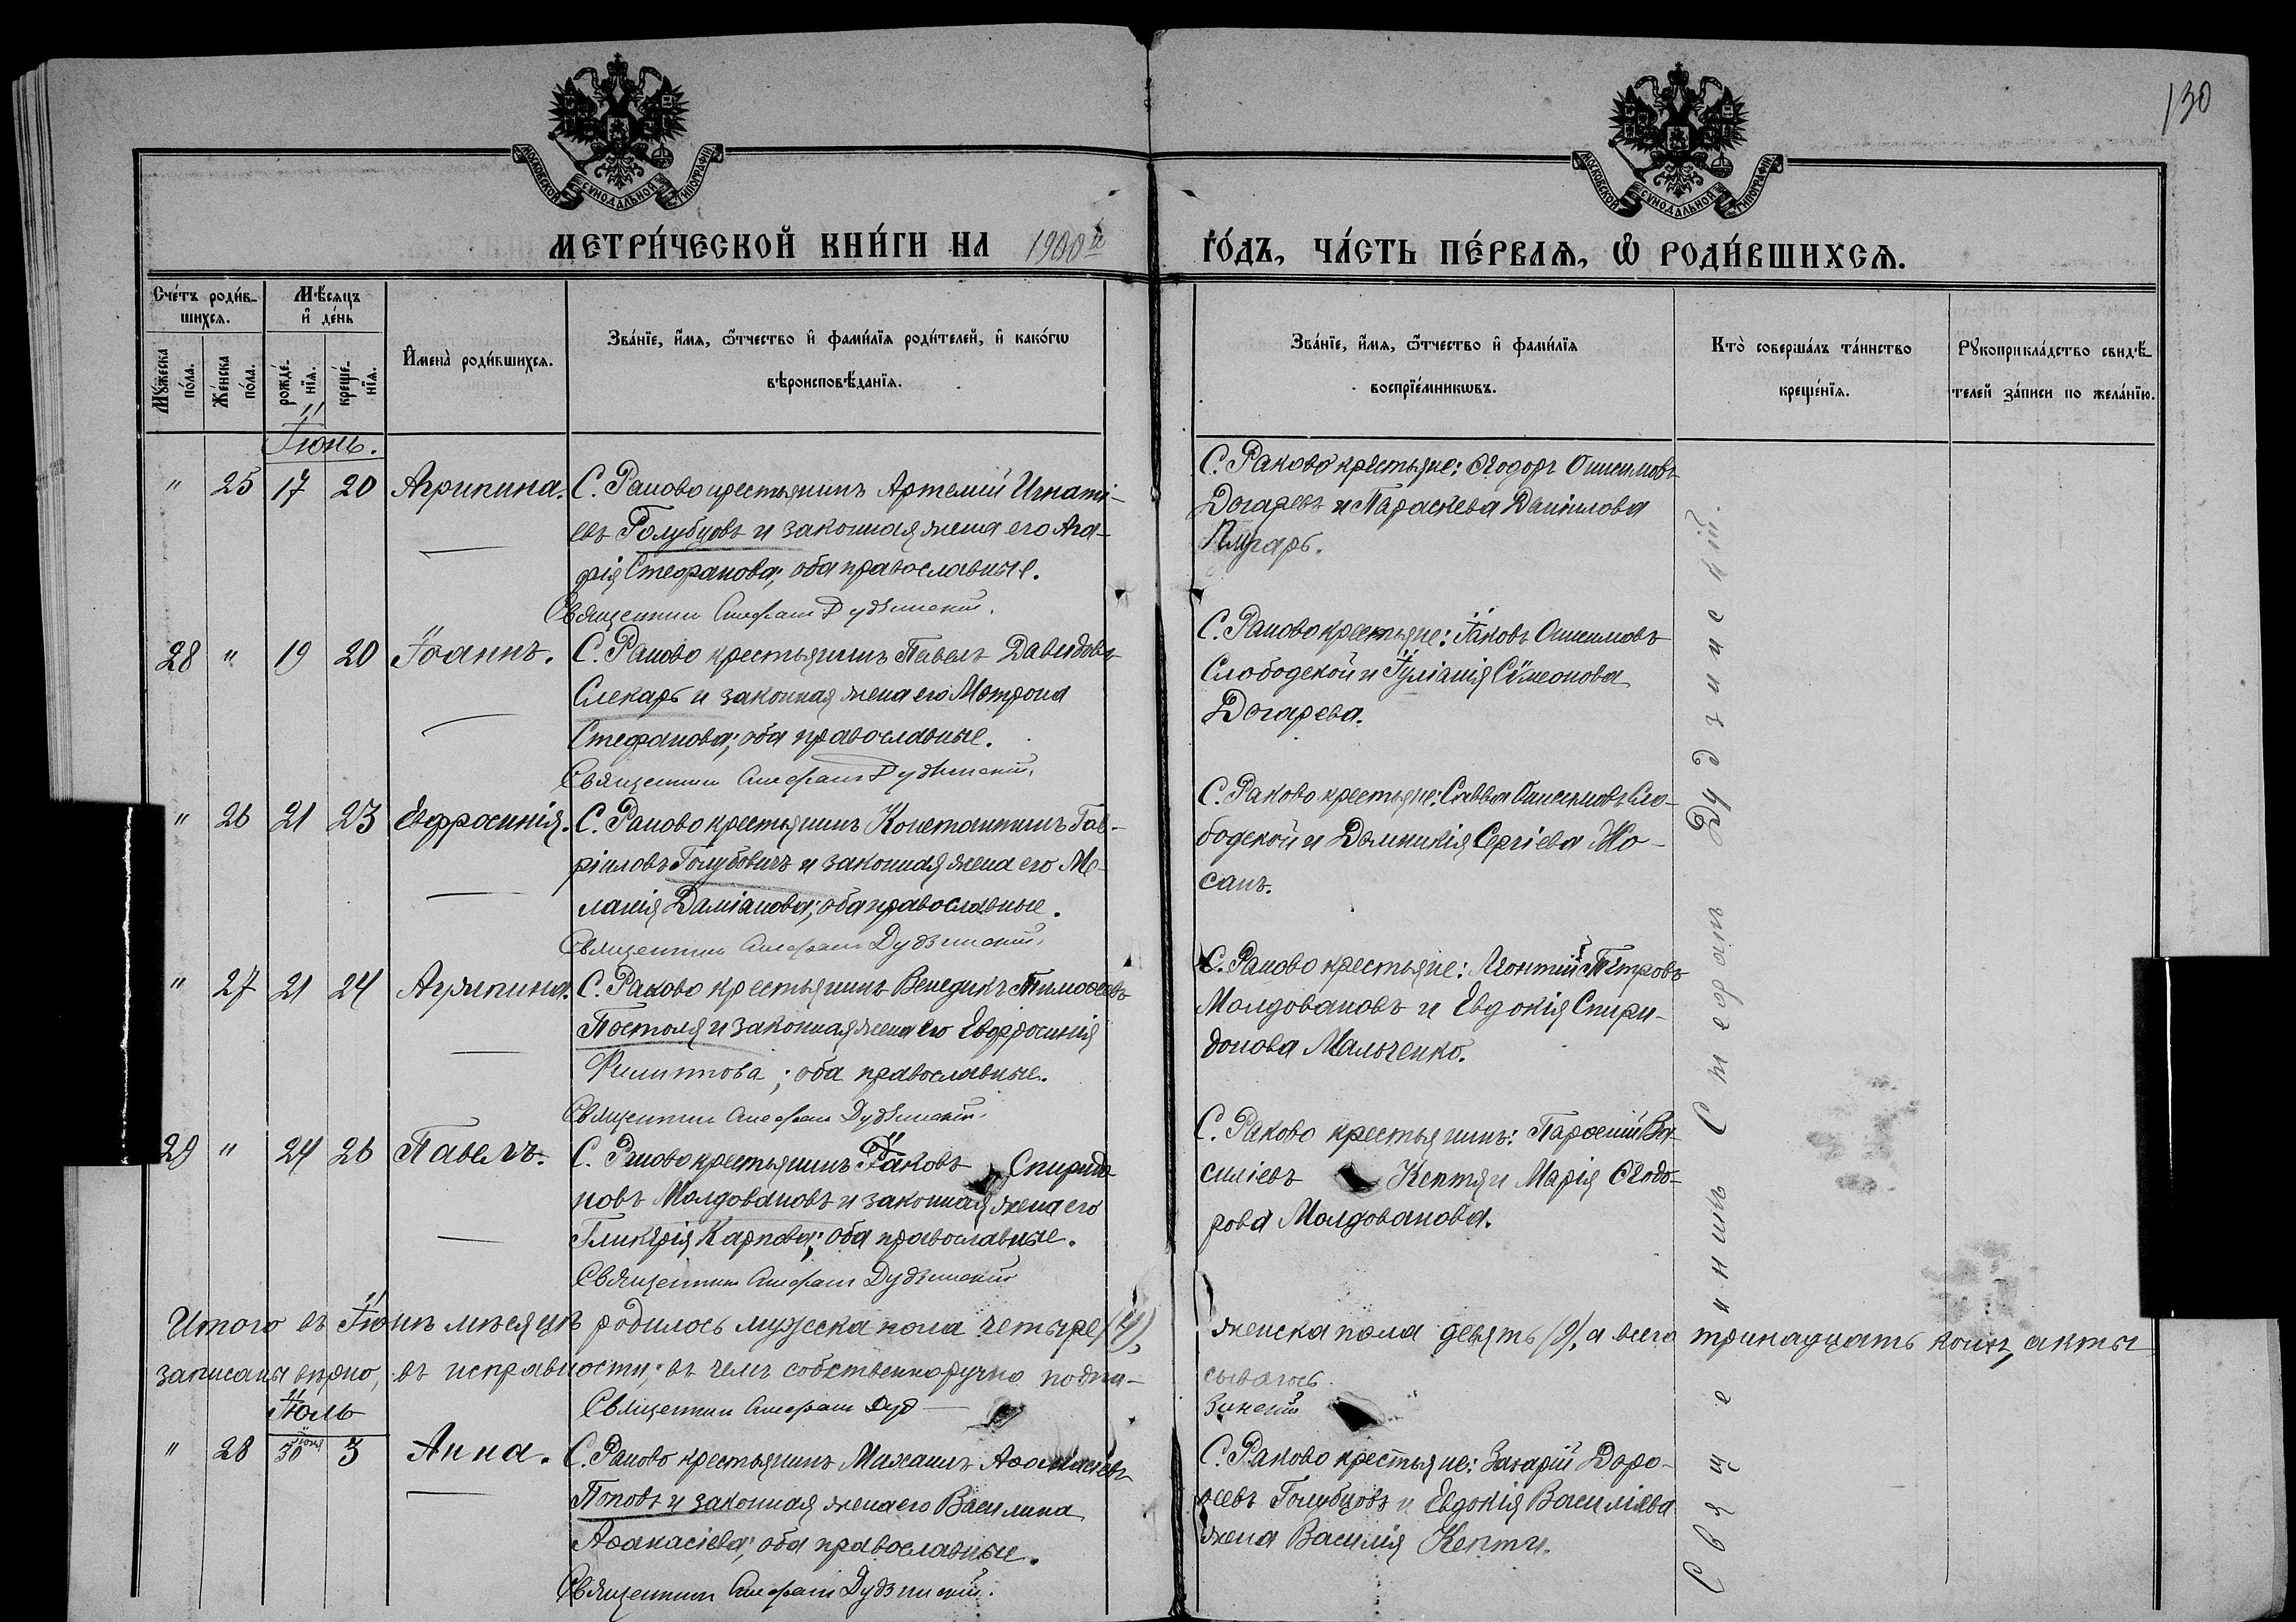 130
МОСКОВСКОЙ СѴНОДАЛЬНОЙ ТИПОГРАФІИ
МОСКОВСКОЙ СѴНОДАЛЬНОЙ ТИПОГРАФІИ
МЕТРИ́ЧЕСКОЙ КНИ́ГИ НА 1900й
ГО́ДЪ, ЧА́СТЬ ПЕ́РВАѦ, Ѽ РОДИ́ВШИХСѦ.
Сче́тъ роди́в-
шихсѧ.
Мꙋ́жеска по́ла.
Же́нска по́ла.
Мѣ́сѧцъ и҆ де́нь
рожде́-нїѧ.
креще́-нїѧ.
И҆мена̀ роди́вшихсѧ.
Зва́нїе, и҆́мѧ, ѻ҆́тчество и҆ фами́лїѧ роди́телей, и҆ како́гѡ
вѣроисповѣ́данїѧ.
Зва́нїе, и҆́мѧ, ѻ҆́тчество и҆ фами́лїѧ
воспрїе́мникѡвъ.
Кто̀ соверша́лъ та́инство
креще́нїѧ.
Рꙋкоприкла́дство свидѣ́-
телей за́писи по жела́нїю.
Іюнь.
" 25 17 20 Агрипина. С. Раково крестьянинъ Артемій Игнаті-
евъ Голубцовъ и законная жена его Ага-
фія Стефанова; оба православные.
Священникъ Стефанъ Дудзинскій.
С. Раково крестьяне: Ѳеодоръ Онисимовъ
Догаревъ и Параскева Даніилова
Плугарь.
28 " 19 20 Іоаннъ. С. Раково крестьянинъ Павелъ Давидовъ
Слекарь и законная жена его Матрона
Стефанова; оба православные.
Священникъ Стефанъ Дудзинскій.
С. Раково крестьяне: Іаковъ Онисимовъ
Слободской и Іуліанія Сѵмеонова
Догарева.
" 26 21 23 Евфросинія. С. Раково крестьянинъ Константинъ Гав-
ріиловъ Голубовичъ и законная жена его Ме-
ланія Даміанова; оба православные.
Священникъ Стефанъ Дудзинскій.
С. Раково крестьяне: Савва Онисимовъ Сло-
бодской и Домникія Сергіева Жо-
санъ.
" 27 21 24 Агрипина. С. Раково крестьянинъ Венедиктъ Тимоѳеевъ
Постоля и законная жена его Евфросинія
Филиппова; оба православные.
Священникъ Стефанъ Дудзинскій.
С. Раково крестьяне: Леонтій Петровъ
Молдовановъ и Евдокія Спири-
донова Мальченко.
29 " 24 26 Павелъ. С. Раково крестьянинъ Іаковъ Спиридо-
новъ Молдовановъ и законная жена его
Гликерія Карпова; оба православные.
Священникъ Стефанъ Дудзинскій
С. Раково крестьянинъ: Парѳеній Ва-
силіевъ Кептя и Марія Ѳеодо-
рова Молдованова.
Итого въ Іюнѣ мѣсяцѣ родилось мужеска пола четыре (4), женска пола девять (9), а всего тринадцать коихъ акты
записаны вѣрно, въ исправности; въ чемъ собственноручно подпи-
сываюсь
Священникъ Стефанъ Дуд-
зинскій
Іюль
" 28 30 іюня 3 Анна. С. Раково крестьянинъ Михаилъ Аѳанасіевъ
Поповъ и законная жена его Василина
Аѳанасіева; оба православные.
Священникъ Стефанъ Дудзинскій.
С. Раково крестьяне: Захарій Доро-
ѳеевъ Голубцовъ и Евдокія Василіева
жена Василія Кептя.
Священникъ Стефанъ Дудзинскій.